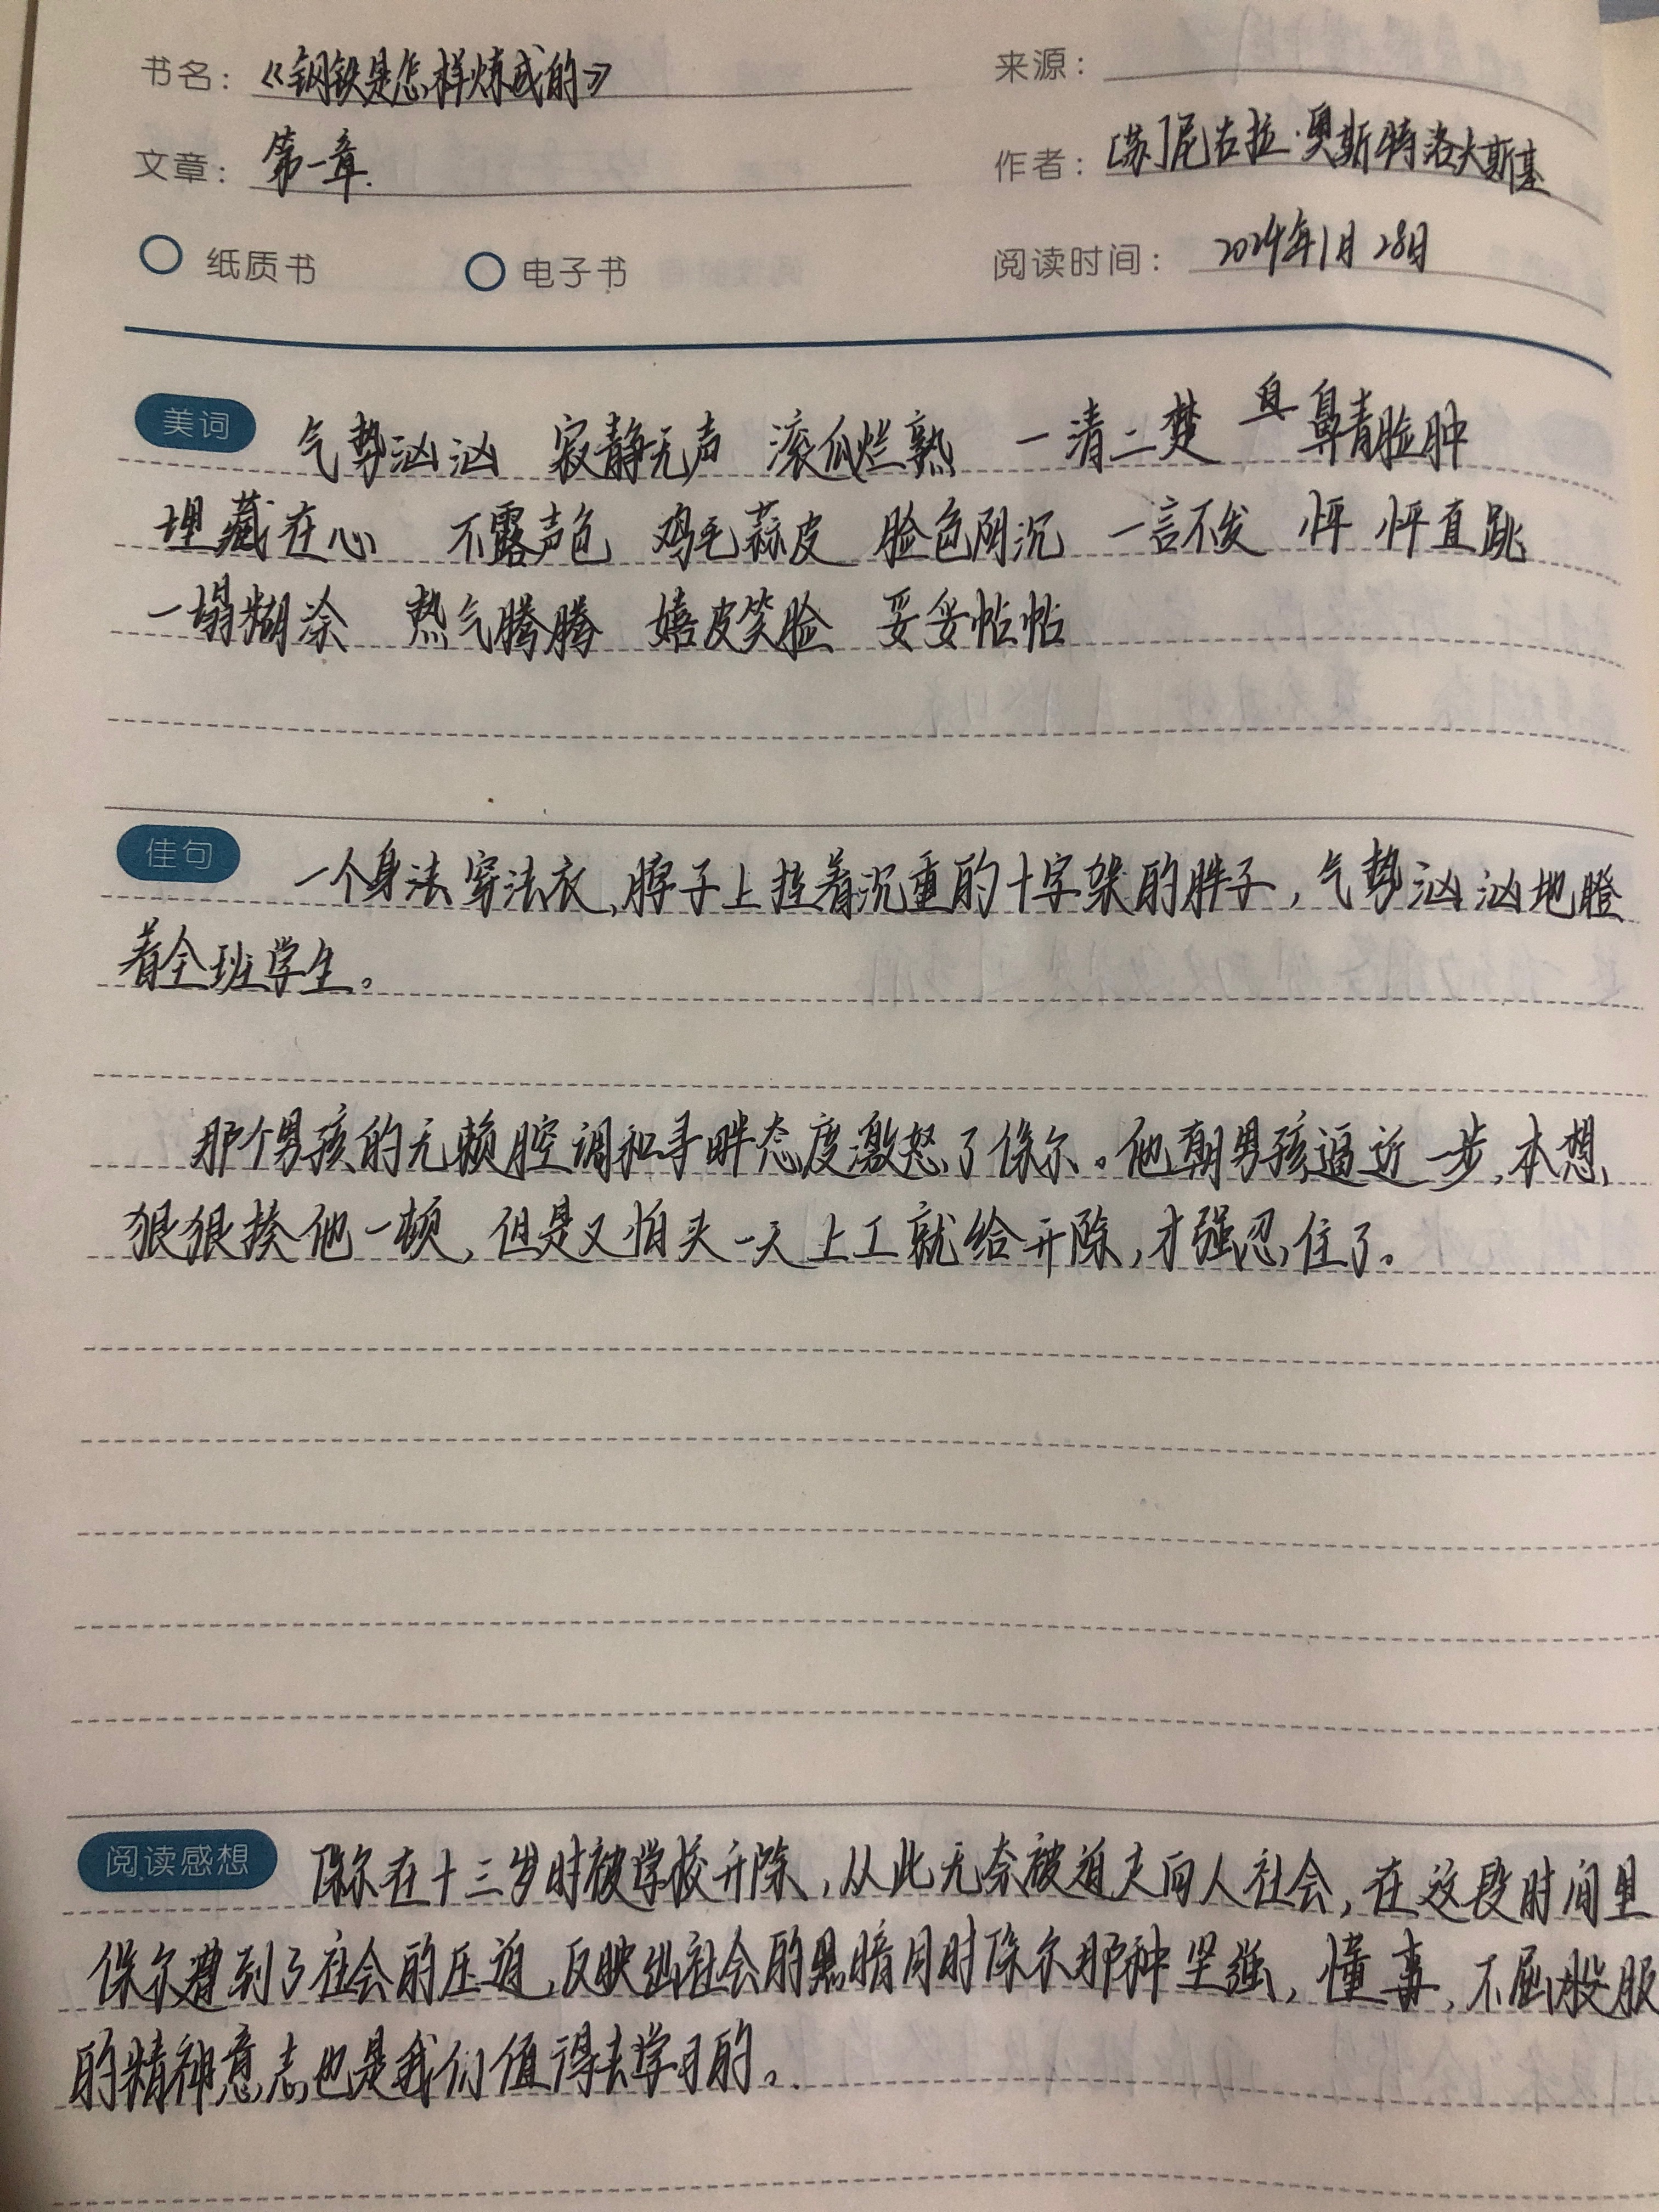 书名：《钢铁是怎样炼成的》
来源：
文章：第一章.
作者：[苏]尼古拉·奥斯特洛夫斯基
纸质书 电子书
阅读时间：2024年1月28日
美词 气势汹汹 寂静无声 滚瓜烂熟 一清二楚 鼻青脸肿
埋藏在心 不露声色 鸡毛蒜皮 脸色阴沉 一言不发 怦怦直跳
一塌糊涂 热气腾腾 嬉皮笑脸 妥妥帖帖
佳句 一个身法穿法衣,脖子上挂着沉重的十字架的胖子,气势汹汹地瞪
着全班学生。
那个男孩的无赖腔调和寻畔态度激怒了保尔。他朝男孩逼近一步,本想
狠狠揍他一顿,但是又怕头一天上工就给开除,才强忍住了。
阅读感想 保尔在十三岁时被学校开除,从此无奈被迫走向人社会,在这段时间里
保尔遭到了社会的压迫,反映出社会的黑暗同时保尔那种坚强,懂事,不屈投服
的精神意志也是我们值得去学习的。